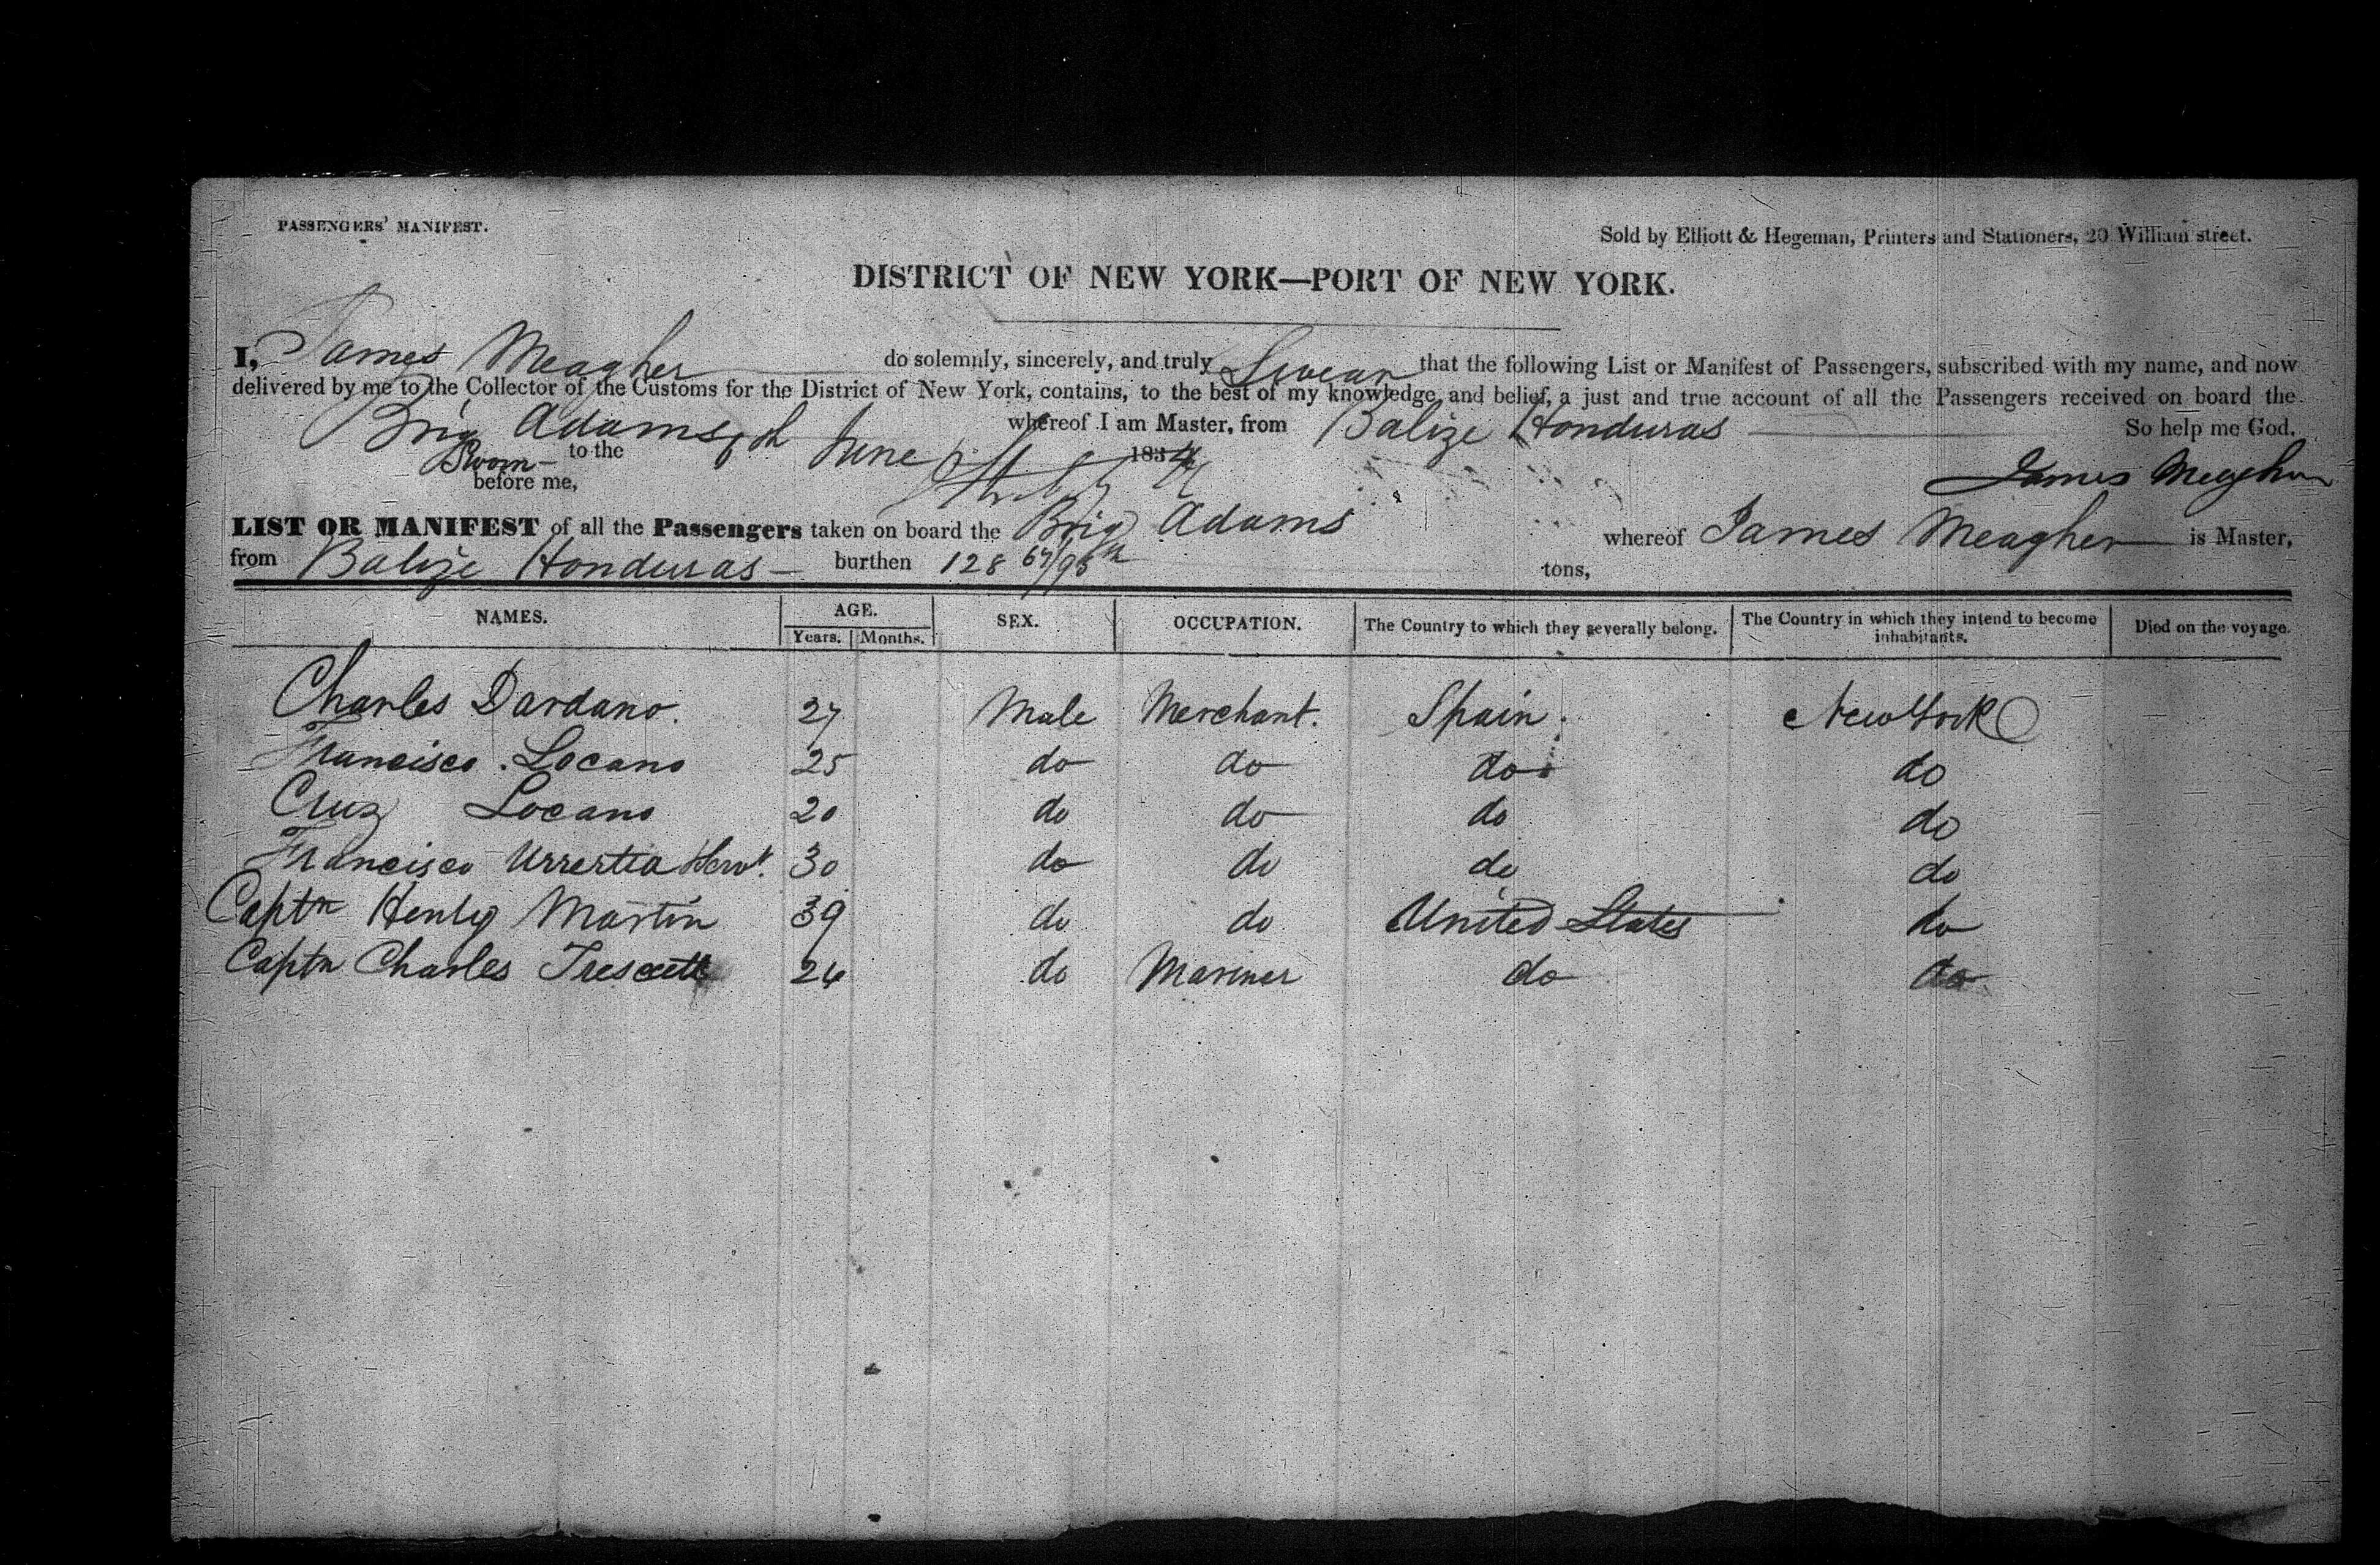 PASSENGERS' MANIFEST.
Sold by Elliott & Hegeman, Printers and Stationers, 20 William street.
DISTRICT OF NEW YORK—PORT OF NEW YORK.
I, James Meagher do solemnly, sincerely, and truly Swear that the following List or Manifest of Passengers, subscribed with my name, and now
delivered by me to the Collector of the Customs for the District of New York, contains, to the best of my knowledge and belief, a just and true account of all the Passengers received on board the
Brig Adams whereof I am Master, from Balize Honduras So help me God.
Sworn to the June 1834
before me,
James Meagher
LIST OR MANIFEST of all the Passengers taken on board the Brig Adams whereof James Meagher is Master,
from Balize Honduras burthen 128 67/95th tons,
NAMES. AGE. SEX. OCCUPATION. The Country to which they severally belong. The Country in which they intend to become inhabitants. Died on the voyage.
Years. Months.
Charles Dardano. 27 Male Merchant. Spain. New York
Francisco Locano 25 do do do do
Cruz Locano 20 do do do do
Francisco Urrertia Servt. 30 do do do do
Captn Henry Martin 39 do do United States do
Captn Charles 24 do Mariner do do